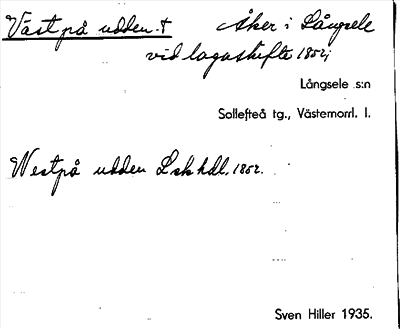 Väst på udden. † Åker i Långsele
vid lagaskifte 1852;
Långsele s:n
Sollefteå tg., Västernorrl. l.
Westpå udden Lsk hdl. 1852.
Sven Hiller 1935.